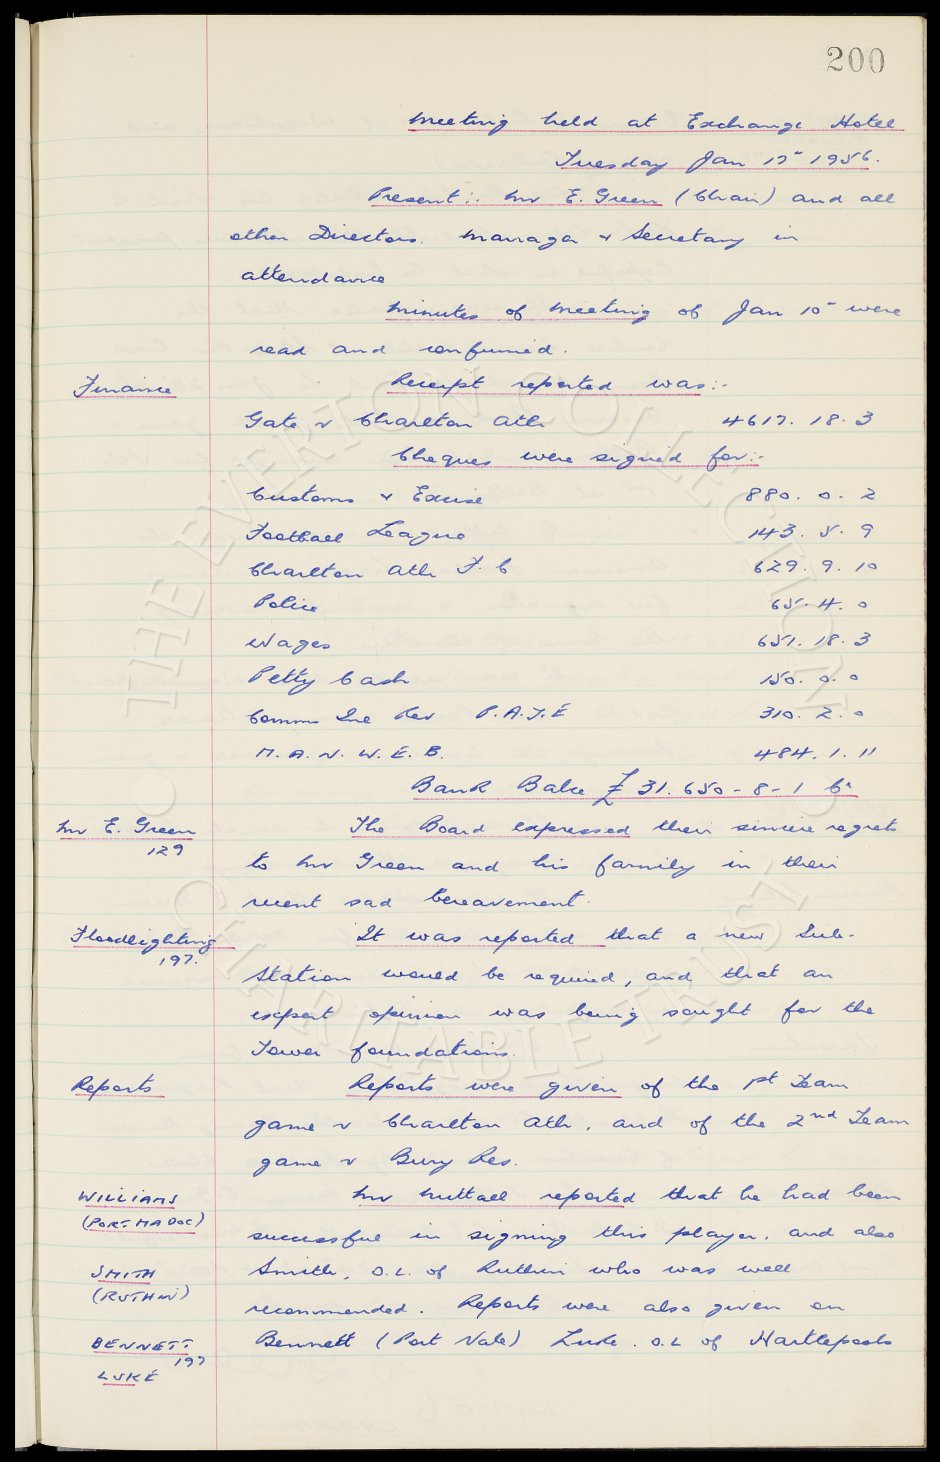 200
Meeting held at Exchange Hotel
Tuesday Jan 17 1956.
Present:. Mr E. Green (Chair) and all
other Directors. Manager & Secretary in
attendance
Minutes of Meeting of Jan 10 were
read and confirmed.
Finance
Receipt reported was:-
Gate v Charlton Ath 4617. 18. 3
Cheques were signed for:-
Customs & Excise 880. 0. 2
Football League 143. 5. 9
Charlton Ath F. C 629. 9. 10
Police 65. 4. 0
Wages 651. 18. 3
Petty Cash 150. 0. 0
Comms Ins Rev P.A.Y.E 310. 2. 0
M. A. N. W. E. B. 484. 1. 11
Bank Balce £31.650-8-1 Cr
Mr E. Green
129
The Board expressed their sincere regrets
to Mr Green and his family in their
recent sad bereavement.
Floodlighting
197.
It was reported that a new Sub-
Station would be required, and that an
expert opinion was being sought for the
Tower foundations.
Reports
Reports were given of the 1st Team
game v Charlton Ath. and of the 2nd Team
game v Bury Res.
WILLIAMS
(PORTMADOC)
Mr Nuttall reported that he had been
successful in signing this player, and also
SMITH
(RUTHIN)
Smith, O.L. of Ruthin who was well
recommended. Reports were also given on
BENNETT
197
LUKE
Bennett (Port Vale) Luke. O.L of Hartlepools
© THE EVERTON COLLECTION CHARITABLE TRUST